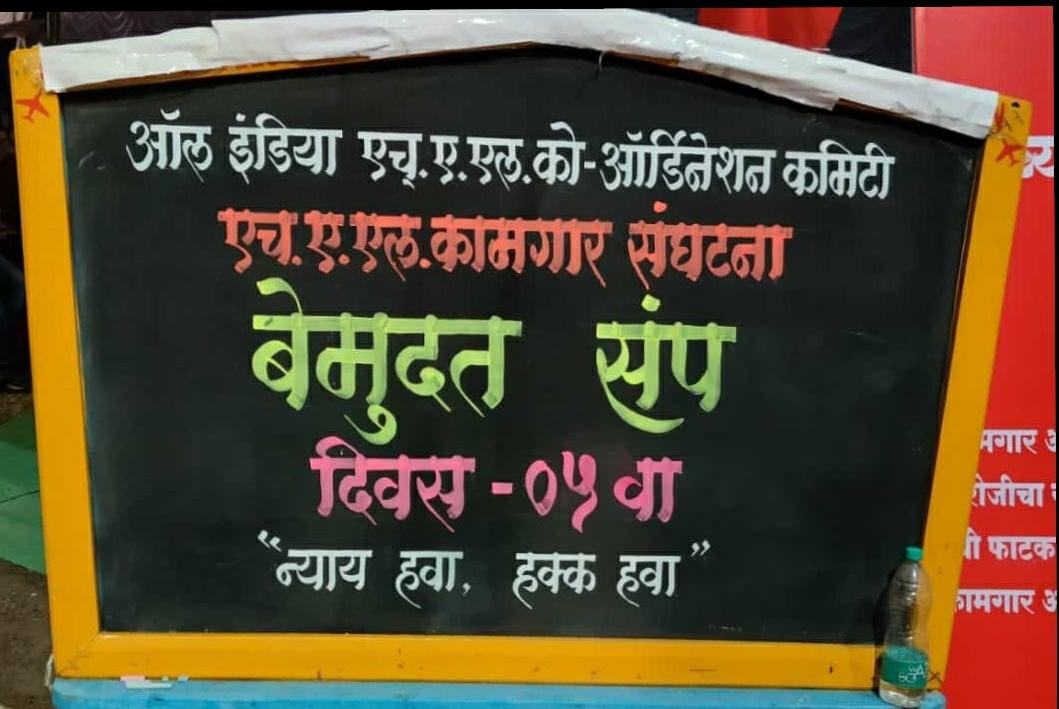 ऑल इंडिया एच्.ए.एल.को-ऑर्डिनेशन कमिटी
एच.ए.एल.कामगार संघटना
बेमुदत संप
दिवस - ०५ वा
“न्याय हवा, हक्क हवा”
मगार
रोजीचा
फाटक
कामगार